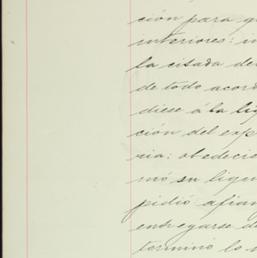 ción para q
interiores: i
la citada de
de todo acor
diese á la liq
ción del exp
ria: obedecio
mó su liqu
pidió afian
entregarse d
terminó lo